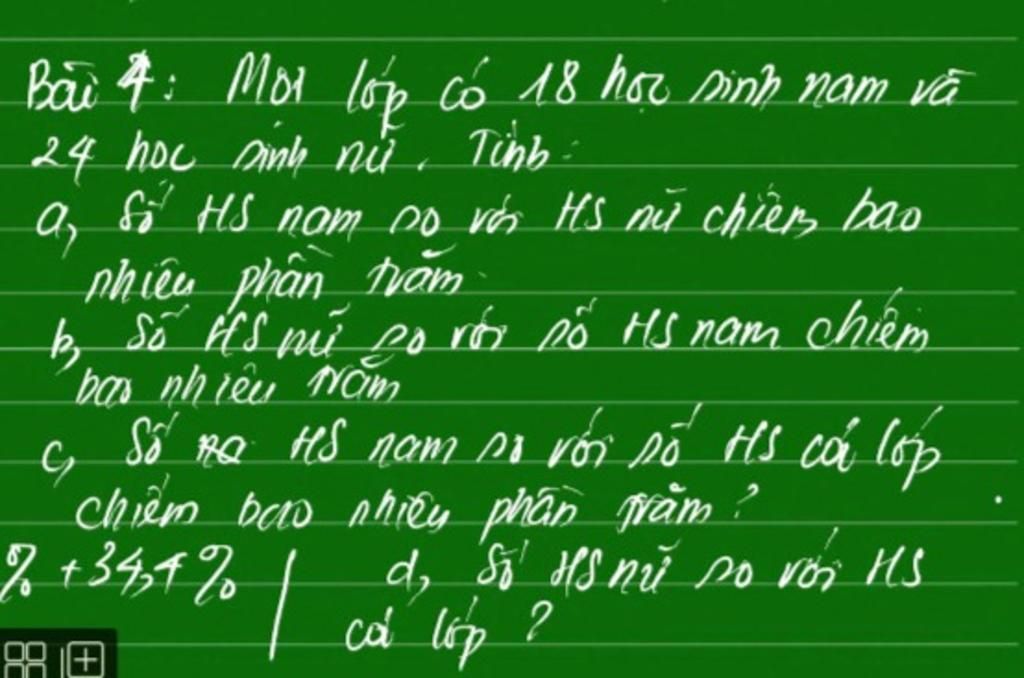 Bài 4: Một lớp có 18 học sinh nam và
24 học sinh nữ. Tính:
a, Số HS nam so với HS nữ chiếm bao
nhiêu phần trăm.
b, Số HS nữ so với số HS nam chiếm
bao nhiêu trăm
c, Số HS nam so với số HS cả lớp
chiếm bao nhiêu phần trăm?
% + 34,4% | d, Số HS nữ so với HS
cả lớp?